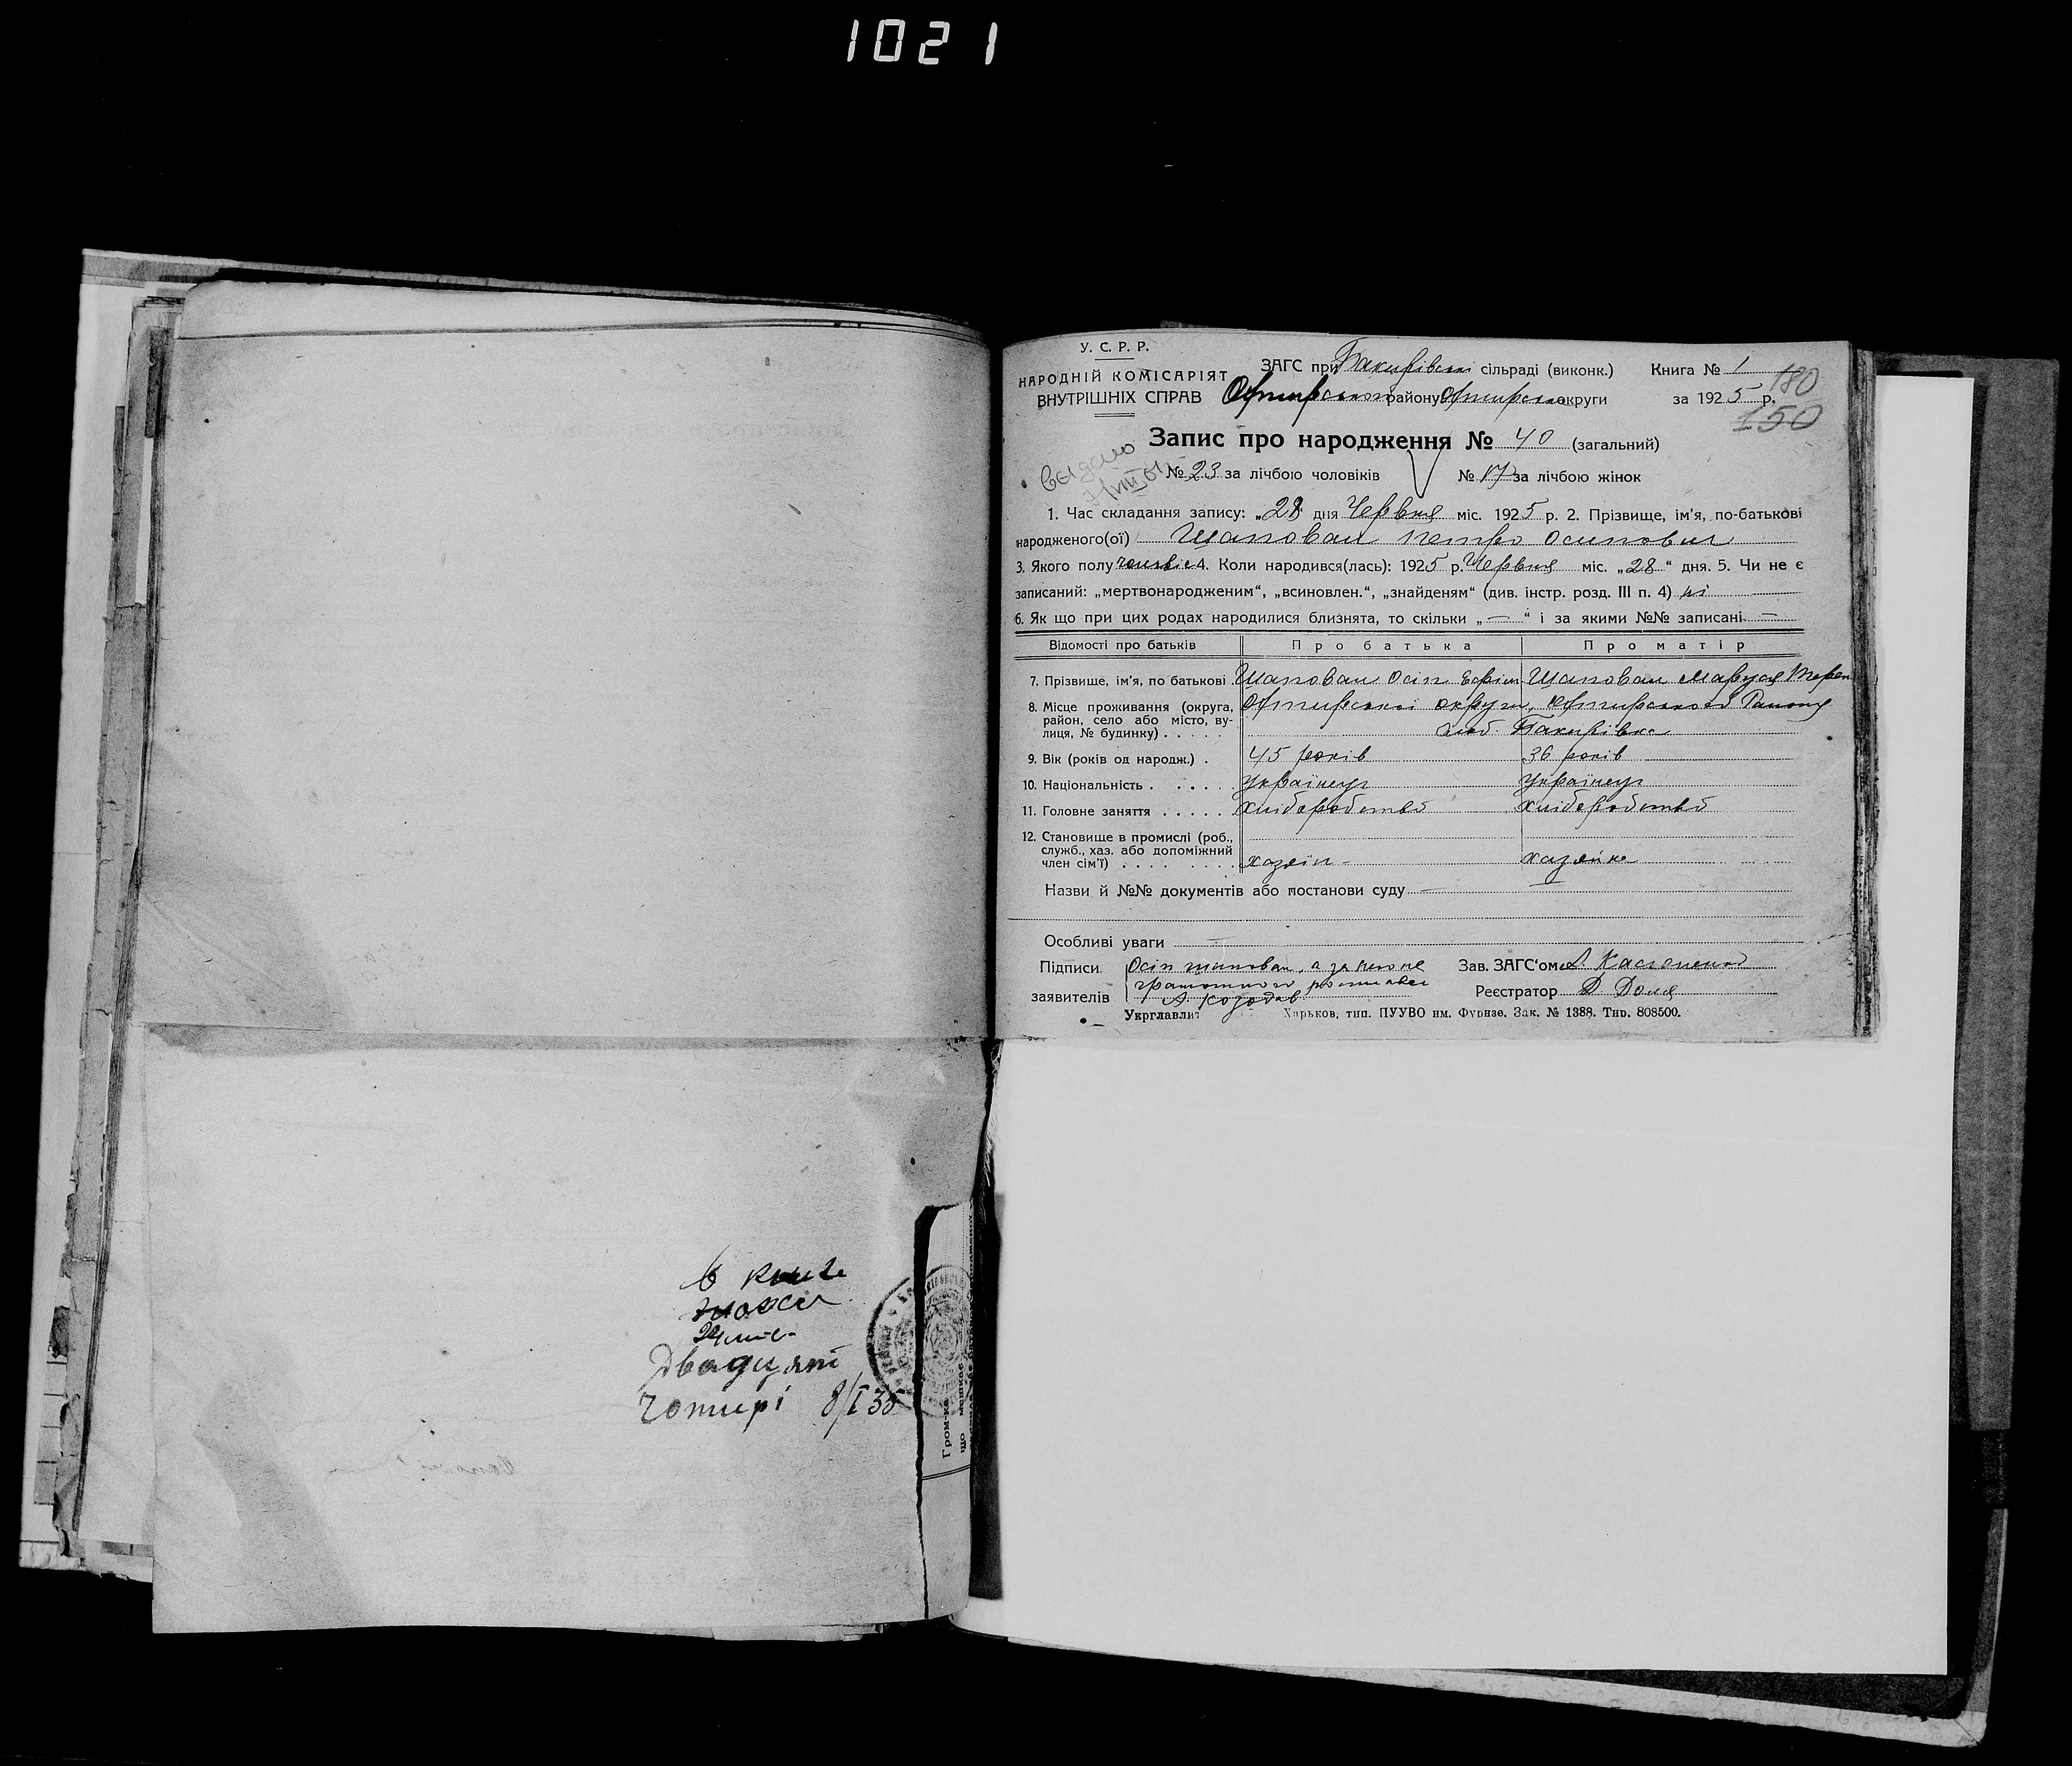 1021
У. С. Р. Р.
НАРОДНІЙ КОМІСАРІЯТ
ВНУТРІШНІХ СПРАВ
ЗАГС при Бакирівській сільраді (виконк.) Книга № 1
району округи за 1925 р.
180
150
Запис про народження № 40 (загальний)
видано
№ 23 за лічбою чоловіків № 17 за лічбою жінок
1. Час складання запису: „28" дня Червня міс. 1925 р. 2. Прізвище, ім'я, по-батькові
народженого(ої) Шаповал Петро Осипович
3. Якого полу 4. Коли народився(лась): 1925 р. Червня міс. „28" дня. 5. Чи не є
записаний: „мертвонародженим", „всиновлен.", „знайденям" (див. інстр. розд. III п. 4) ні
6. Як що при цих родах народилися близнята, то скільки „—" і за якими №№ записані —
Відомості про батьків Про батька Про матір
7. Прізвище, ім'я, по батькові Шаповал Осіп Єфім Шаповал Маруся Терен
8. Місце проживання (округа, район, село або місто, вулиця, № будинку) Охтирської округи, Охтирського Району
Бакирівка
9. Вік (років од народж.) 45 років 36 років
10. Національність Українец Українец
11. Головне заняття хліборобство хліборобство
12. Становище в промислі (роб., служб., хаз. або допоміжний член сім'ї) хазяїн хазяйка
Назви й №№ документів або постанови суду —
Особливі уваги —
Підписи
заявителів
Осіп Шаповал, а за його не
грамотного росписався
А Козодав
Зав. ЗАГС'ом
Реєстратор Д Доля
Укрглавліт Харьков, тип. ПУУВО им. Фрунзе. Зак. № 1388. Тир. 808500.
в книзі
Двадцят
чотирі 8/I 35
Гром-ка
що мешкає